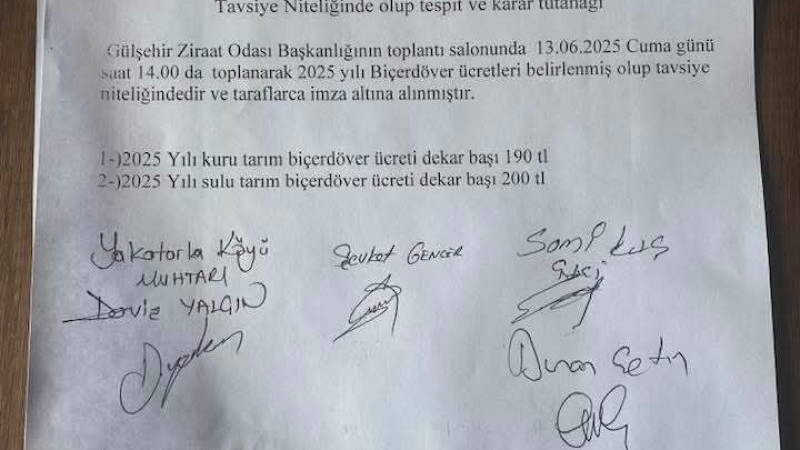 Tavsiye Niteliğinde olup tespit ve karar tutanağı
Gülşehir Ziraat Odası Başkanlığının toplantı salonunda 13.06.2025 Cuma günü
saat 14.00 da toplanarak 2025 yılı Biçerdöver ücretleri belirlenmiş olup tavsiye
niteliğindedir ve taraflarca imza altına alınmıştır.
1-)2025 Yılı kuru tarım biçerdöver ücreti dekar başı 190 tl
2-)2025 Yılı sulu tarım biçerdöver ücreti dekar başı 200 tl
Yakatarla Köyü
MUHTARI
YALGIN
Şevket GENCER
Kuş
Çetin